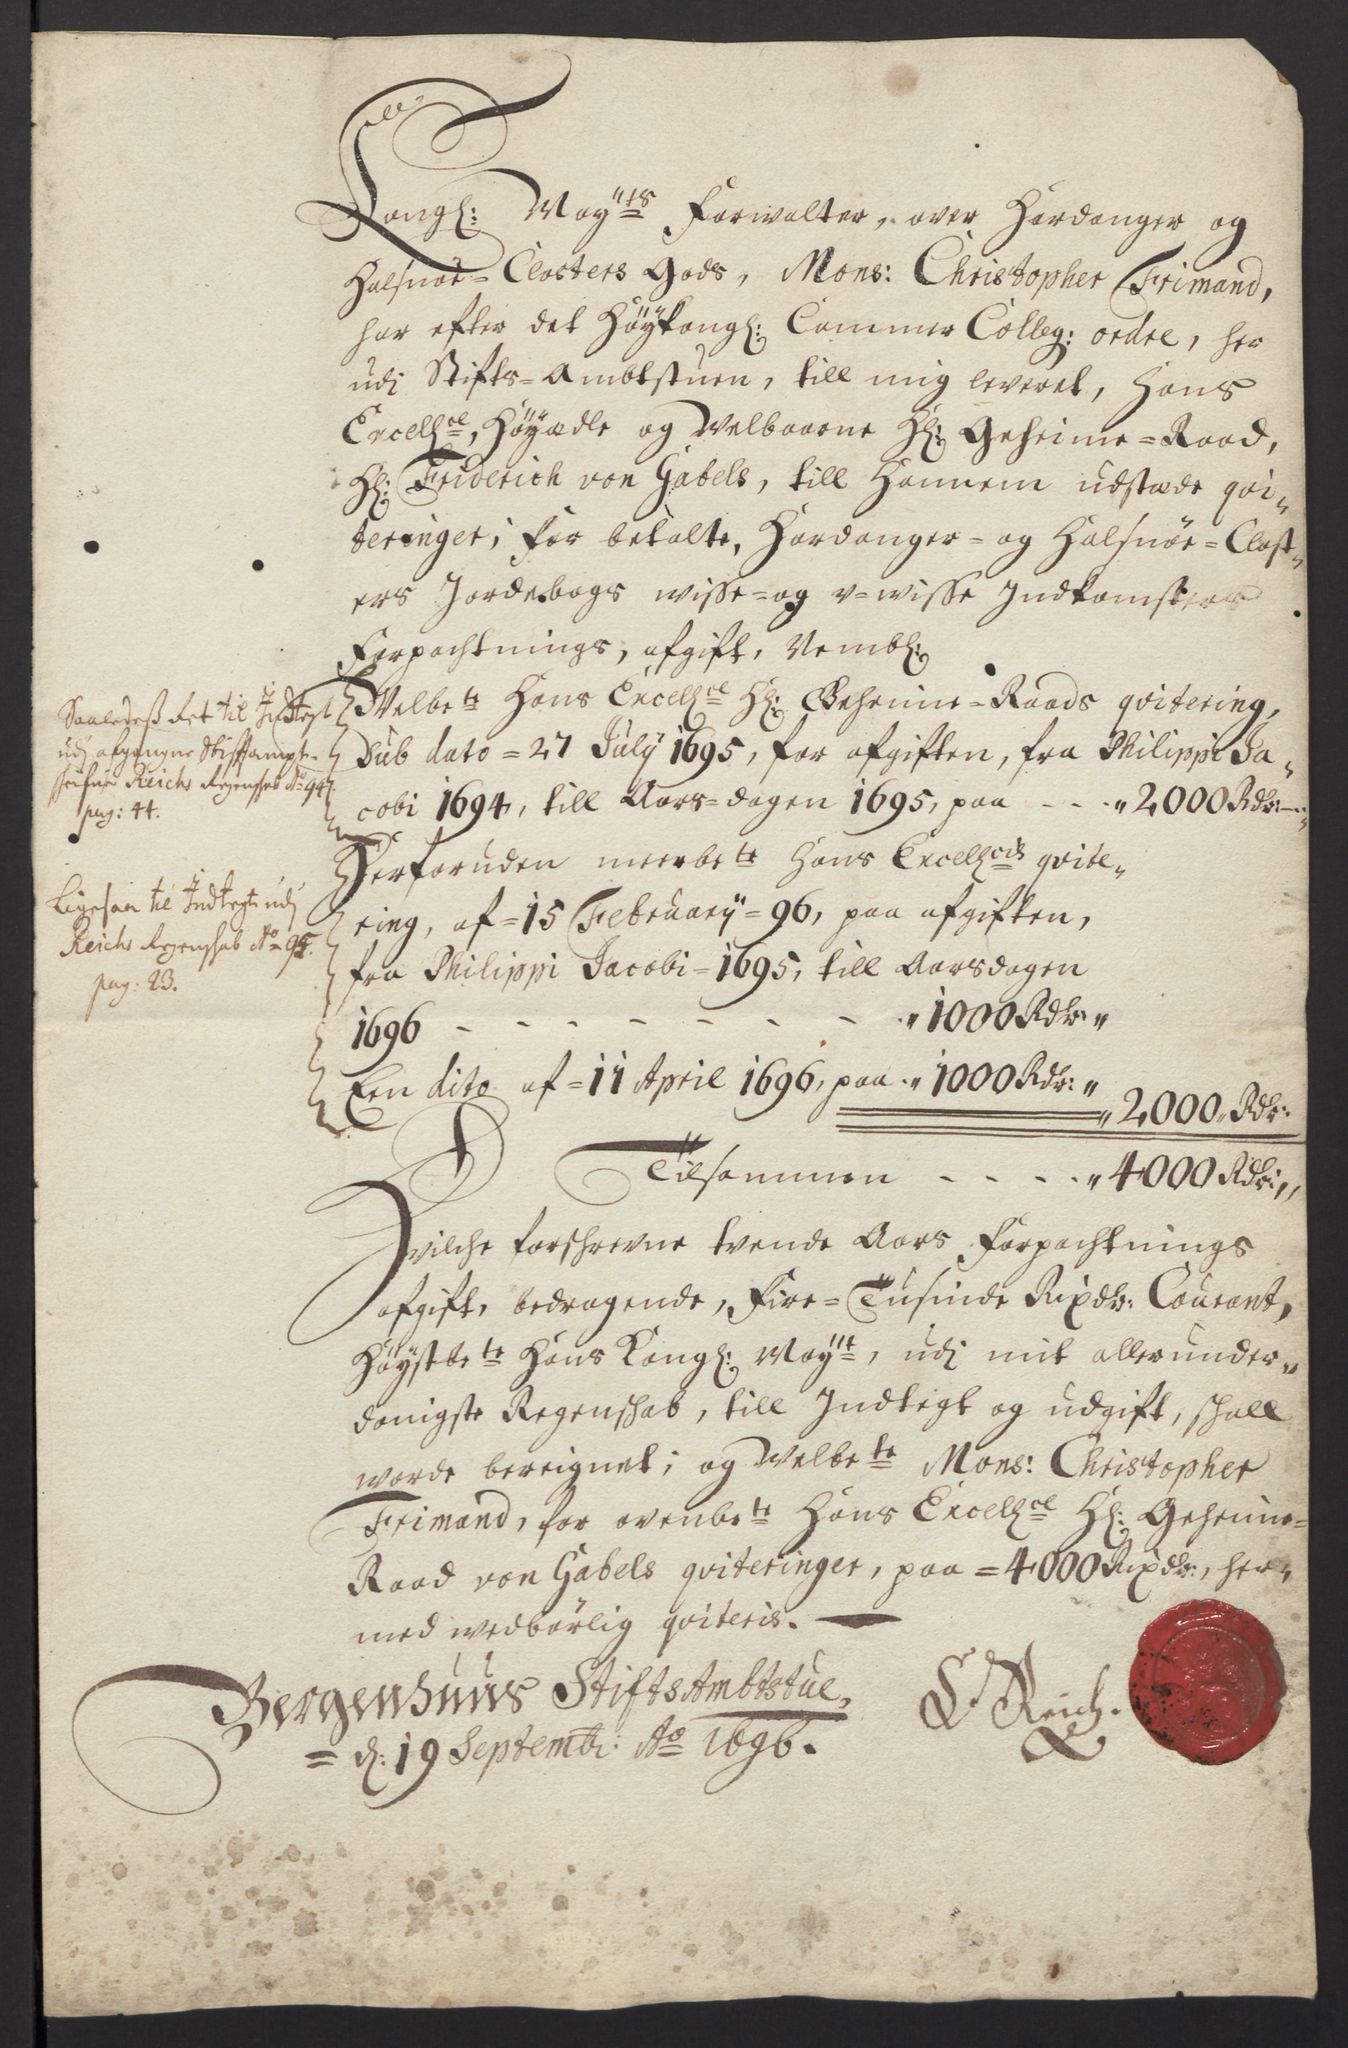 Kongl: May:ts Forwalter, over Hardanger og
Halsnöe=Closters Gods, Mons: Christopher Frimand,
har efter det Höykongl: Cammer Colleg: ordre, her
udj Stifts=Ambtstuen, till mig leveret, Hans
Excell:ce, Höyædle og Welbaarne Hl: Geheime=Raad,
Hl: Friderich von Gabels, till Hannem udstæde qvi„
teringer, for betalte, Hardanger= og Halsnöe=Clost„
ers Jordebogs wisse=og v=wisse Indkomsters
Forpachtnings, afgift, Nembl:
Welbe:te Hans Excell:ce Hl: Geheime=Raads qvitering,
Sub dato=27 Julÿ 1695, for afgiften, fra Philippi Ja„
cobi 1694, till Aars=dagen 1695, paa - - - „2000 Rdr:
Herforuden meerbe:te Hans Excell:ces qvite„
ring, af=15 Februarÿ=96, paa afgiften,
fra Philippi Jacobi=1695, till Aarsdagen
1696 - - - - - - - - „1000 Rdr: „
Een dito af=11 April 1696, paa „1000 Rdr: „
„2000„ Rdr:
Tilsammen - - - - „4000 Rdr: „
Hvilche forschrevne tvende Aars Forpachtnings
afgift, bedragende, Fire=Tusinde Rixdr: Courant,
Höystbe:te Hans Kongl: May:tt, udj mit allerunder„
danigste Regenschab, till Indtegt og udgift, schall
worde beregnet; og Welbe:te Mons: Christopher
Frimand, for ovenbe:te Hans Excell:ce Hl: Geheime=
Raad von Gabels qviteringer, paa=4000 Rixdr:, her„
med wedbörlig qviteris.
Bergenhuus StiftsAmbtstue,
= d: 19 Septembr: Ao 1696.
Reich.
Saaledeß ført til Indtegt
udj afgangne Stiftampt-
schrifver Reichs Regenschab Ao 94.
pag: 44.
Ligesaa til Indtegt udj
Reichs Regenschab Ao 95.
pag: 23.